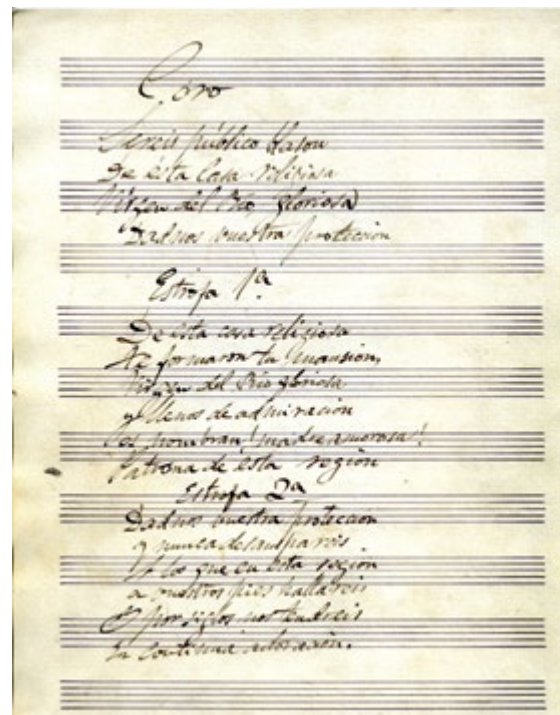 Coro
Sereis público blason
De ésta Casa religiosa
Virgen del Rio gloriosa
Dadnos vuestra proteccion
Estrofa 1ª
De esta casa religiosa
formaron tu mansion,
Virgen del Rio gloriosa
y llenos de admiración
nombran ¡madre amorosa!
Patrona de ésta región
Estrofa 2ª
Dadnos vuestra proteccion
y nunca desampareis
A los que en esta region
a vuestros pies hallareis
Y por siglos nos tendreis
En continua adoración.